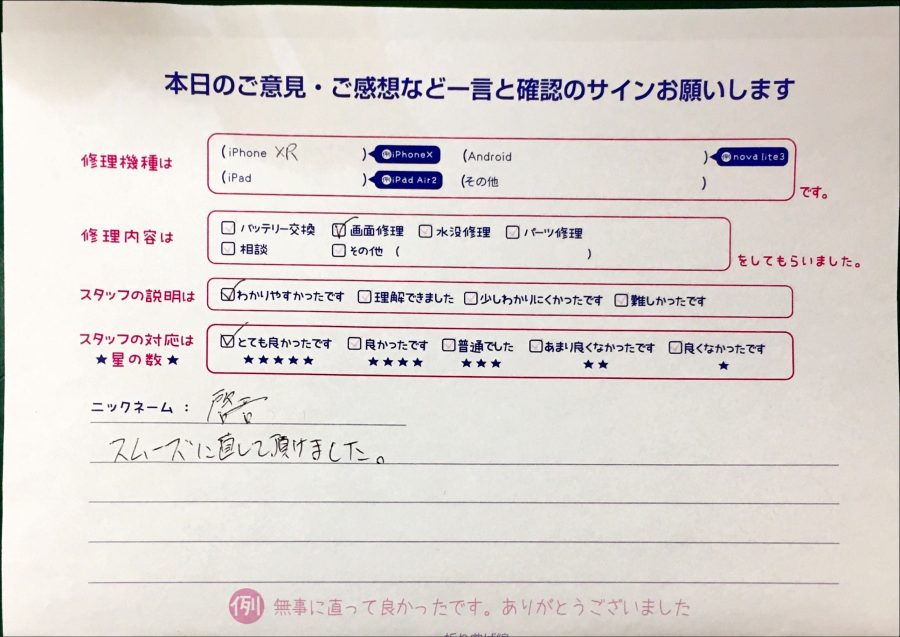 本日のご意見・ご感想など一言と確認のサインお願いします
修理機種は
(iPhone XR ) 例iPhoneX (Android ) 例nova lite3
(iPad ) 例iPad Air2 (その他 )
です。
修理内容は
バッテリー交換 画面修理 水没修理 パーツ修理
相談 その他 ( )
をしてもらいました。
スタッフの説明は わかりやすかったです 理解できました 少しわかりにくかったです 難しかったです
スタッフの対応は とても良かったです 良かったです 普通でした あまり良くなかったです 良くなかったです
★星の数★ ★★★★★ ★★★★ ★★★ ★★ ★
ニックネーム：啓吾
スムーズに直して頂けました。
例 無事に直って良かったです。ありがとうございました